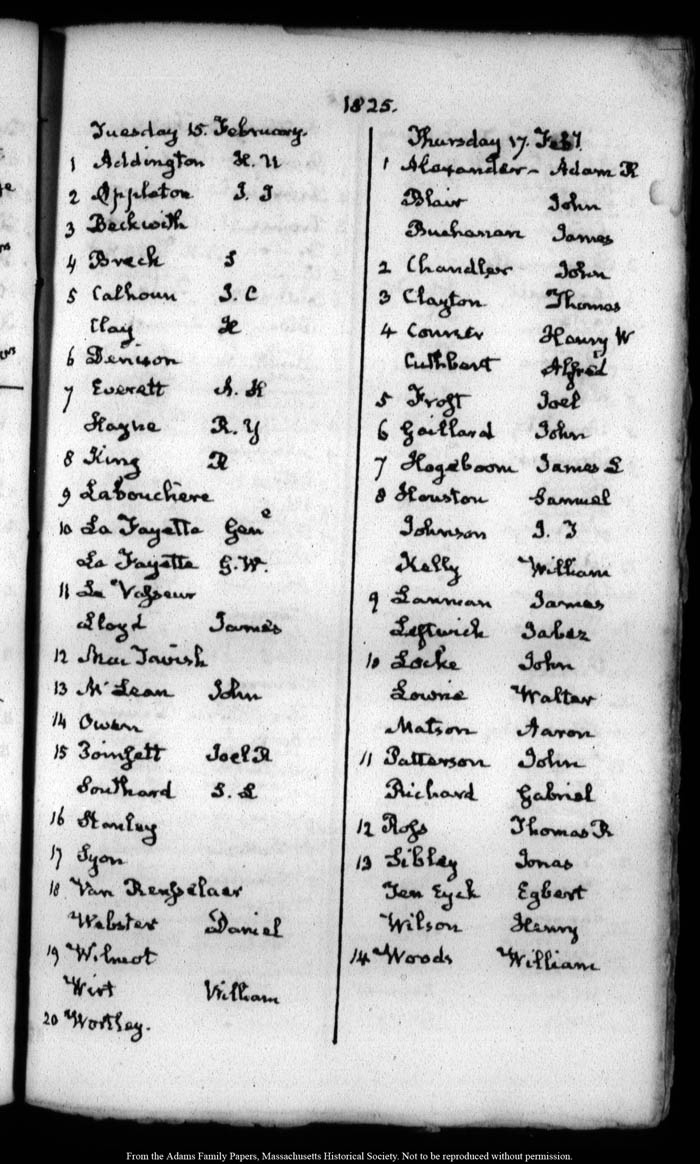 1825.
Tuesday 15. February.
1 Addington H. U
2 Appleton J. J
3 Beckwith
4 Breck S
5 Calhoun J. C
Clay H
6 Denison
7 Everett A. H
Hayne R. Y
8 King R
9 Labouchere
10 La Fayette Gen^e
La Fayette G. W.
11 Le Vasseur
Lloyd James
12 Mac Tavish
13 McLean John
14 Owen
15 Poinsett Joel R
Southard S. L
16 Stanley
17 Lyon
18 Van Rensselaer
Webster Daniel
19 Wilmot
Wirt William
20 Wortley.
Thursday 17. Feby
1 Alexander - Adam R
Blair John
Buchanan James
2 Chandler John
3 Clayton Thomas
4 Conner Henry W
Cuthbert Alfred
5 Frost Joel
6 Gaillard John
7 Hogeboom James L
8 Houston Samuel
Johnson J. T
Kelly William
9 Lanman James
Leftwich Jabez
10 Locke John
Lowrie Walter
Matson Aaron
11 Patterson John
Richard Gabriel
12 Ross Thomas R
13 Sibley Jonas
Ten Eyck Egbert
Wilson Henry
14 Woods William
From the Adams Family Papers, Massachusetts Historical Society. Not to be reproduced without permission.